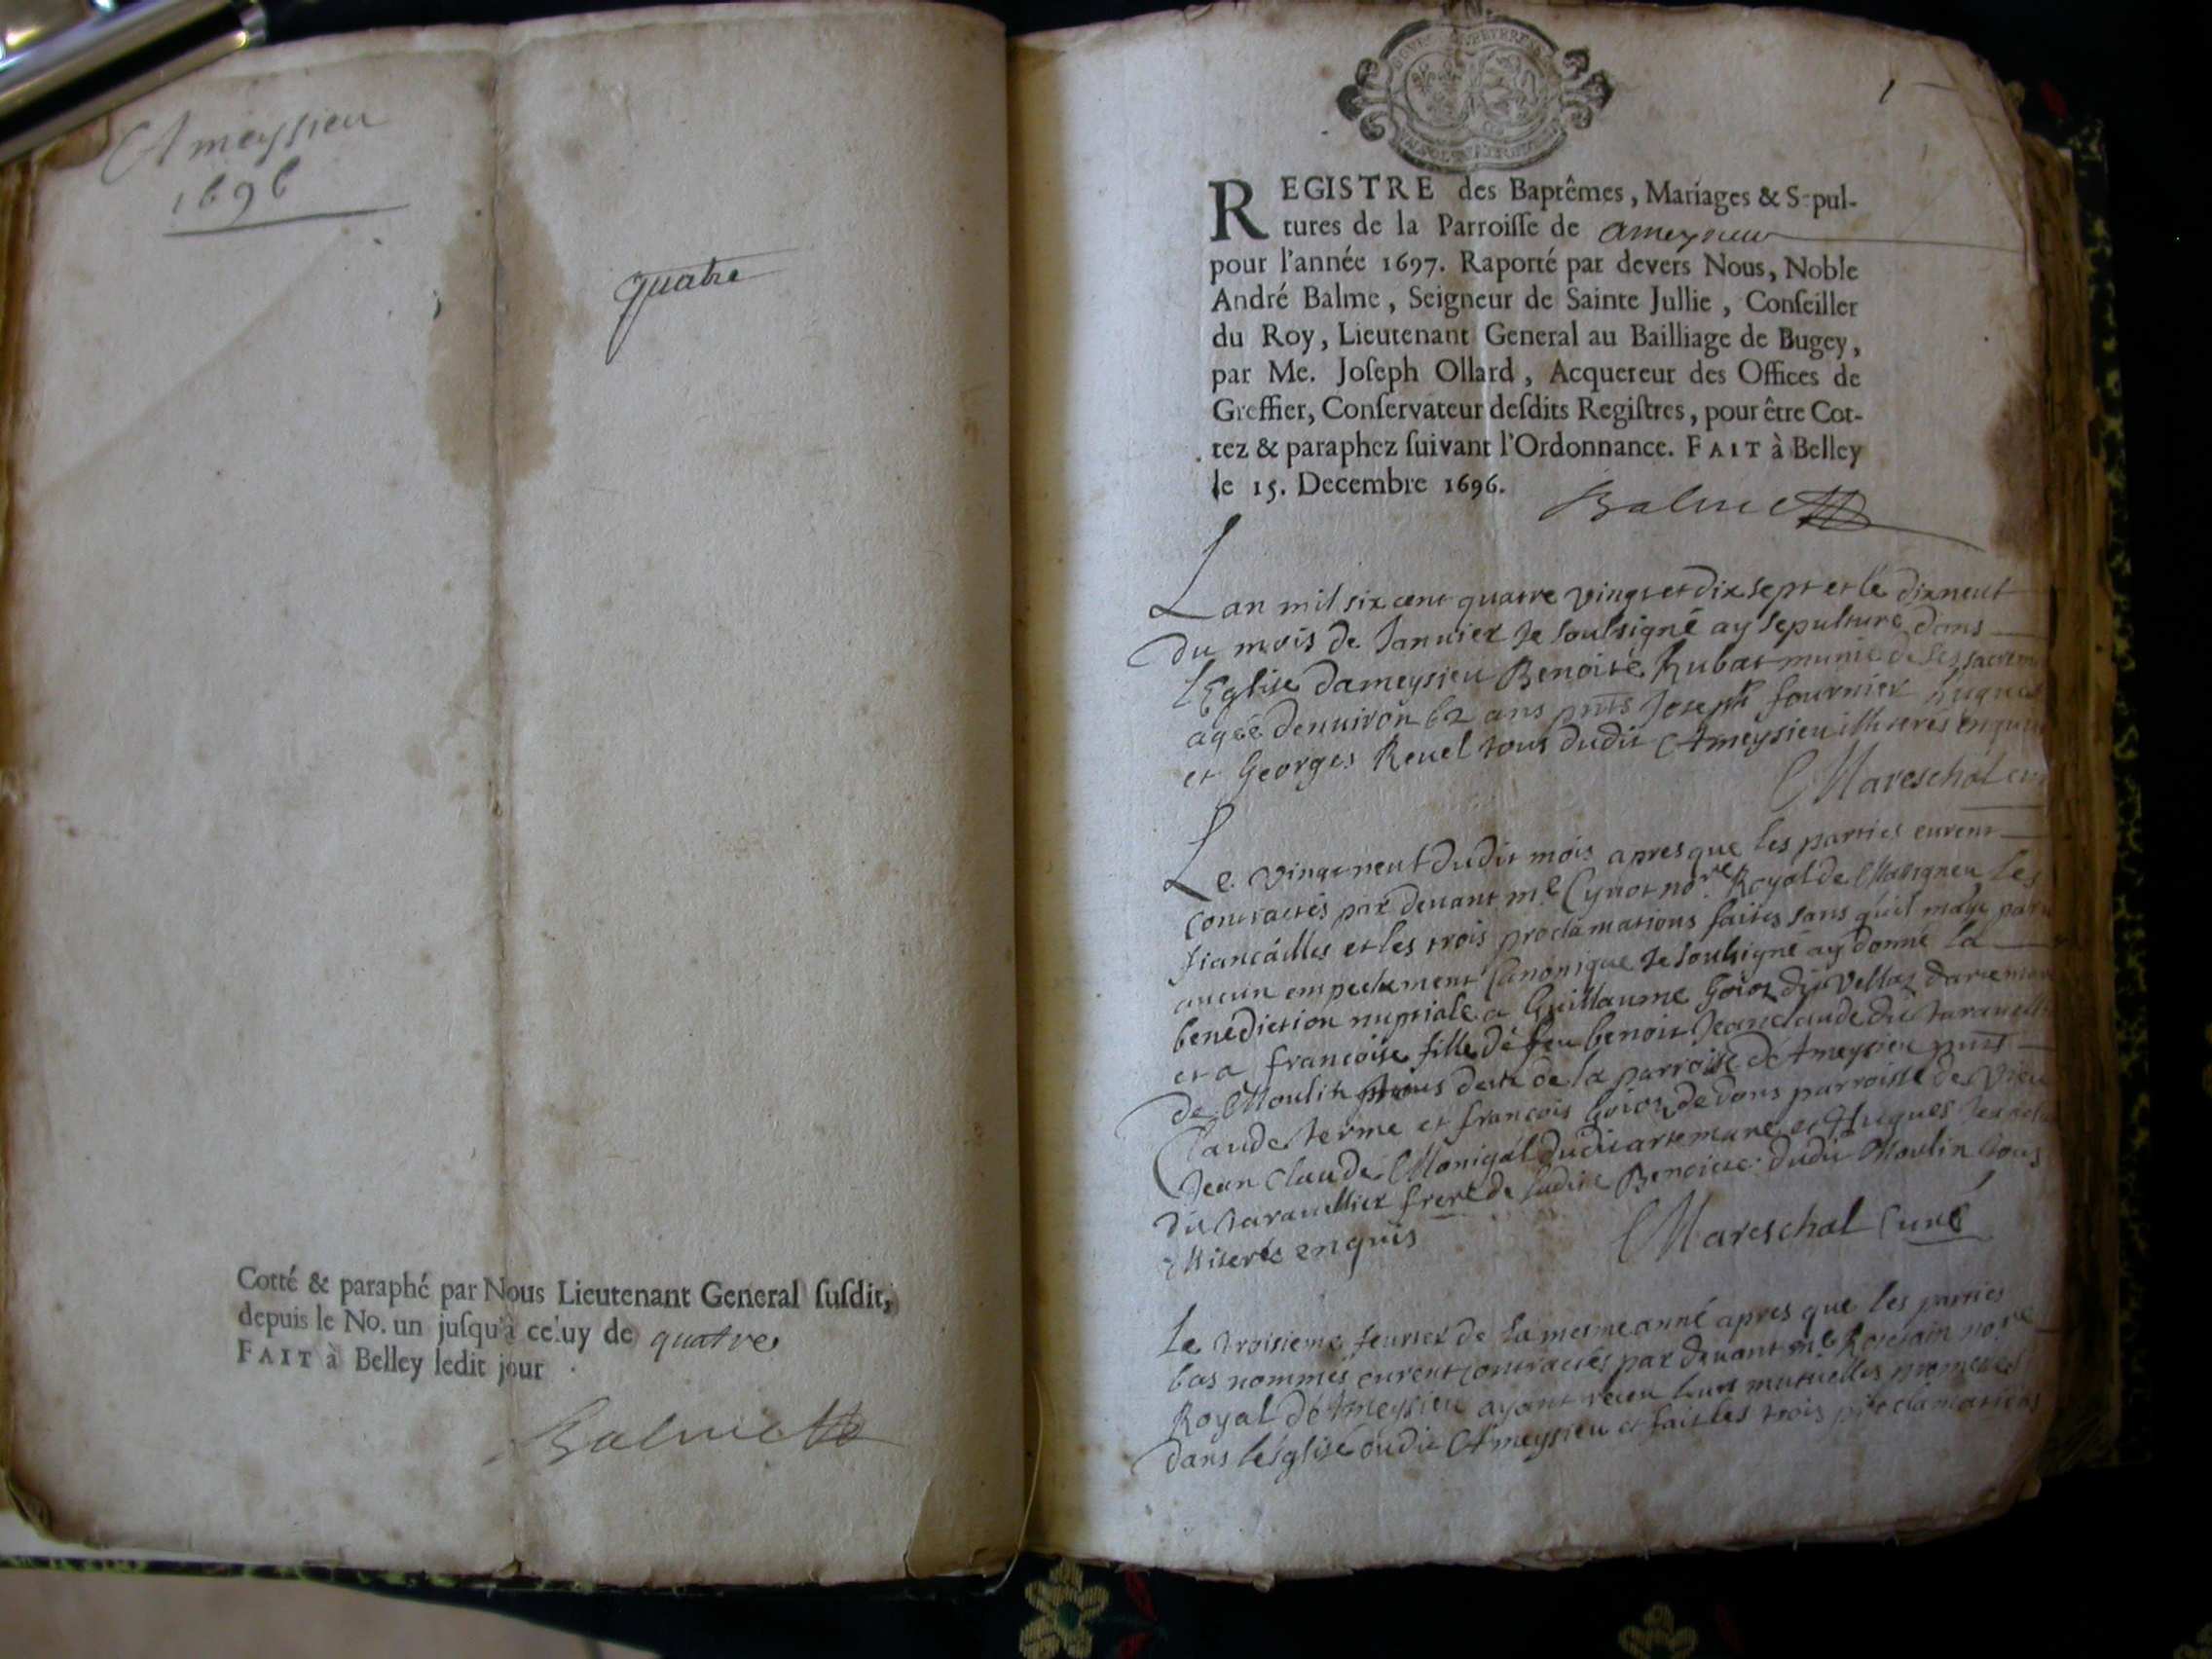 Ameyssieu
1696
quatre
Cotté & paraphé par Nous Lieutenant General ſuſdit,
depuis le No. un juſqu'à celuy de quatre
FAIT à Belley ledit jour
Balme
1
REGISTRE des Baptêmes, Mariages & Sepul-
tures de la Parroiſſe de ameysieu
pour l'année 1697. Raporté par devers Nous, Noble
André Balme, Seigneur de Sainte Jullie, Conſeiller
du Roy, Lieutenant General au Bailliage de Bugey,
par Me. Joſeph Ollard, Acquereur des Offices de
Greffier, Conſervateur deſdits Regiſtres, pour être Cot-
tez & paraphez ſuivant l'Ordonnance. FAIT à Belley
le 15. Decembre 1696.
Balme
Lan mil six cent quatre vingt et dix sept et le dixneuf
du mois de Januier Je soubsigné ay sepulturé dans
l'Eglise dameysieu Benoite Rubat munie de ses sacrem
agée denuiron 62 ans pnts Joseph fournier hugues
et Georges Reuel tous dudit Ameysieu illiterés enquis
Mareschal cur
Le vingt neuf dudit mois apres que les parties eurent
contractés par deuant me Cynot nore Royal de Massigneu les
fiancailles et les trois proclamations faites sans quil m'aye paru
aucun empechement Canonique Je soubsigné ay donné la
benediction nuptiale a Guillaume Goiot dit Vellaz dartemar
et a francoise fille de feu benoit Jeanclaude dit tarauelli
de Moulin tous deux de la parroise d'Ameysieu pnts
Claude terme et francois Goiot de dons parroisse de Vieu
Jean Claude Monigal dudit artemare et Hugues Jeancla
dit tarauellier frere de ladite Benoitte dudit Moulin tous
illiterés enquis
Mareschal Curé
Le troisieme feurier de la mesme anné apres que les parties
bas nommés eurent contractés par deuant me nore
Royal d'Ameysieu ayant receu leurs mutuelles promesses
dans leglise dudit Ameysieu et fait les trois proclamations